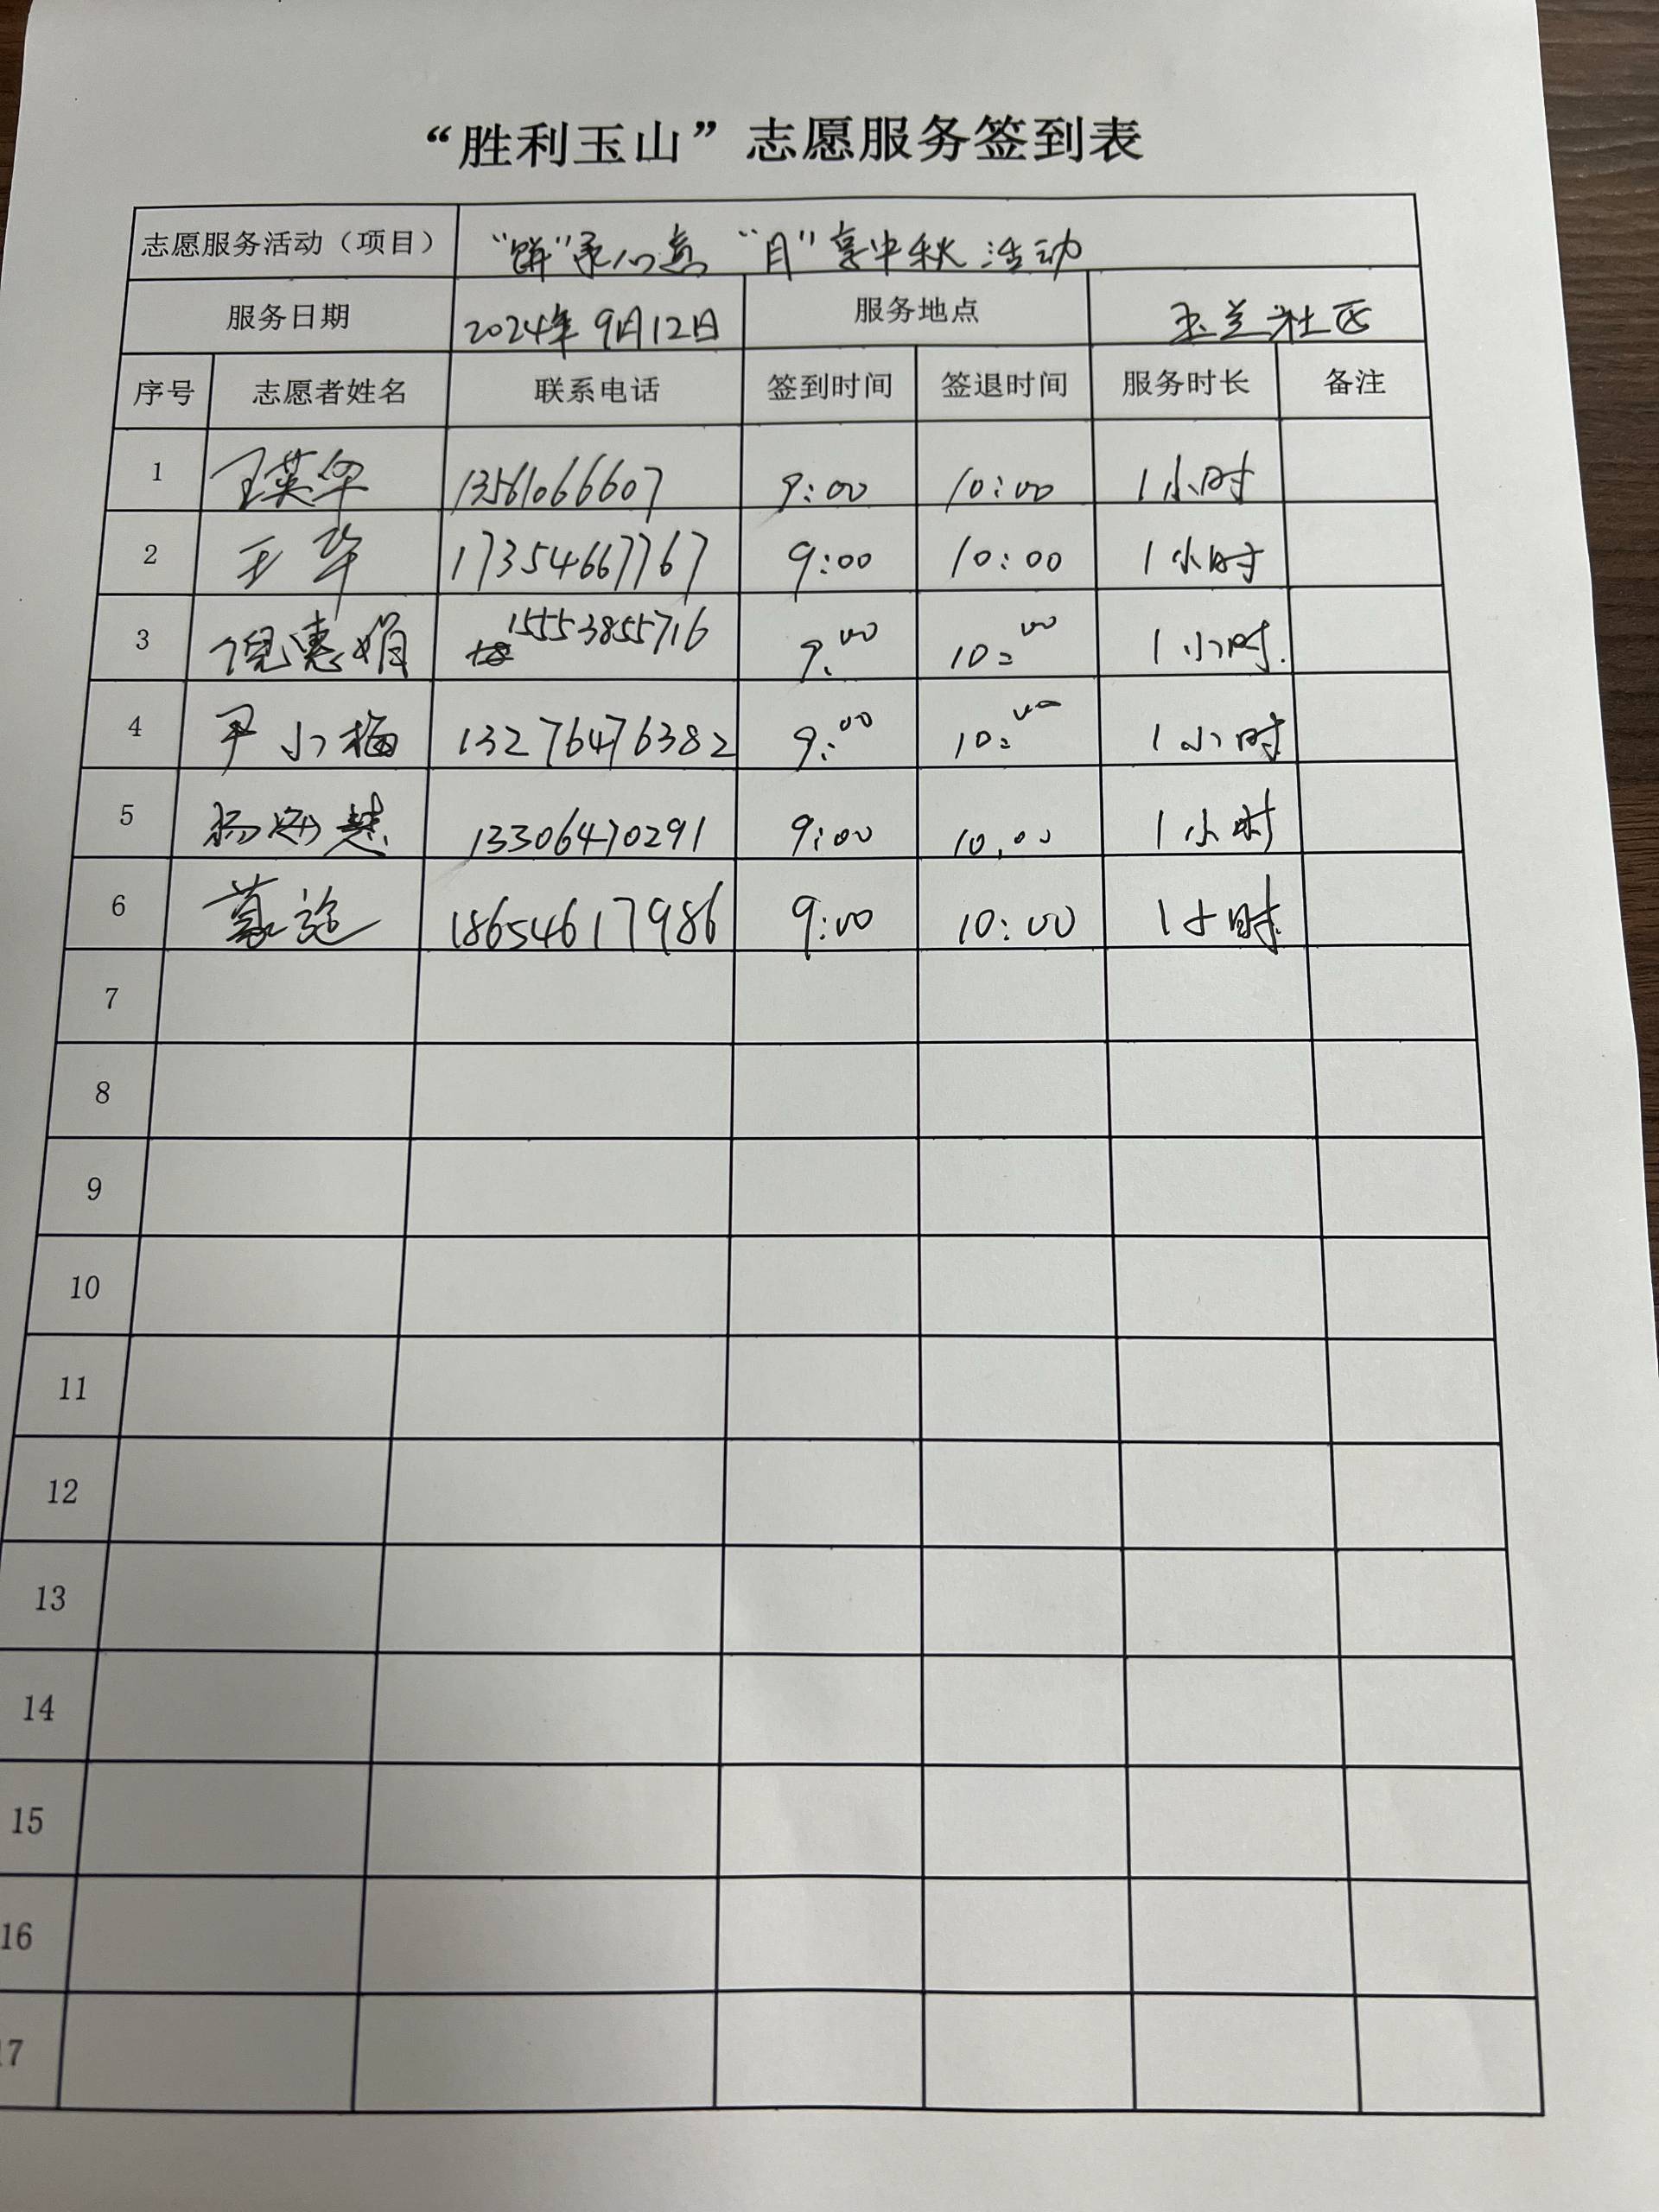 “胜利玉山”志愿服务签到表
志愿服务活动（项目） “饼”承心意 “月”享中秋 活动
服务日期 2024年9月12日 服务地点 玉兰社区
序号 志愿者姓名 联系电话 签到时间 签退时间 服务时长 备注
1 王英华 13561066607 9:00 10:00 1小时
2 王华 17354667767 9:00 10:00 1小时
3 倪惠娟 15553855716 9:00 10:00 1小时.
4 尹小梅 13276476382 9:00 10:00 1小时
5 杨 13306470291 9:00 10:00 1小时
6 18654617986 9:00 10:00 1小时
7
8
9
10
11
12
13
14
15
16
17